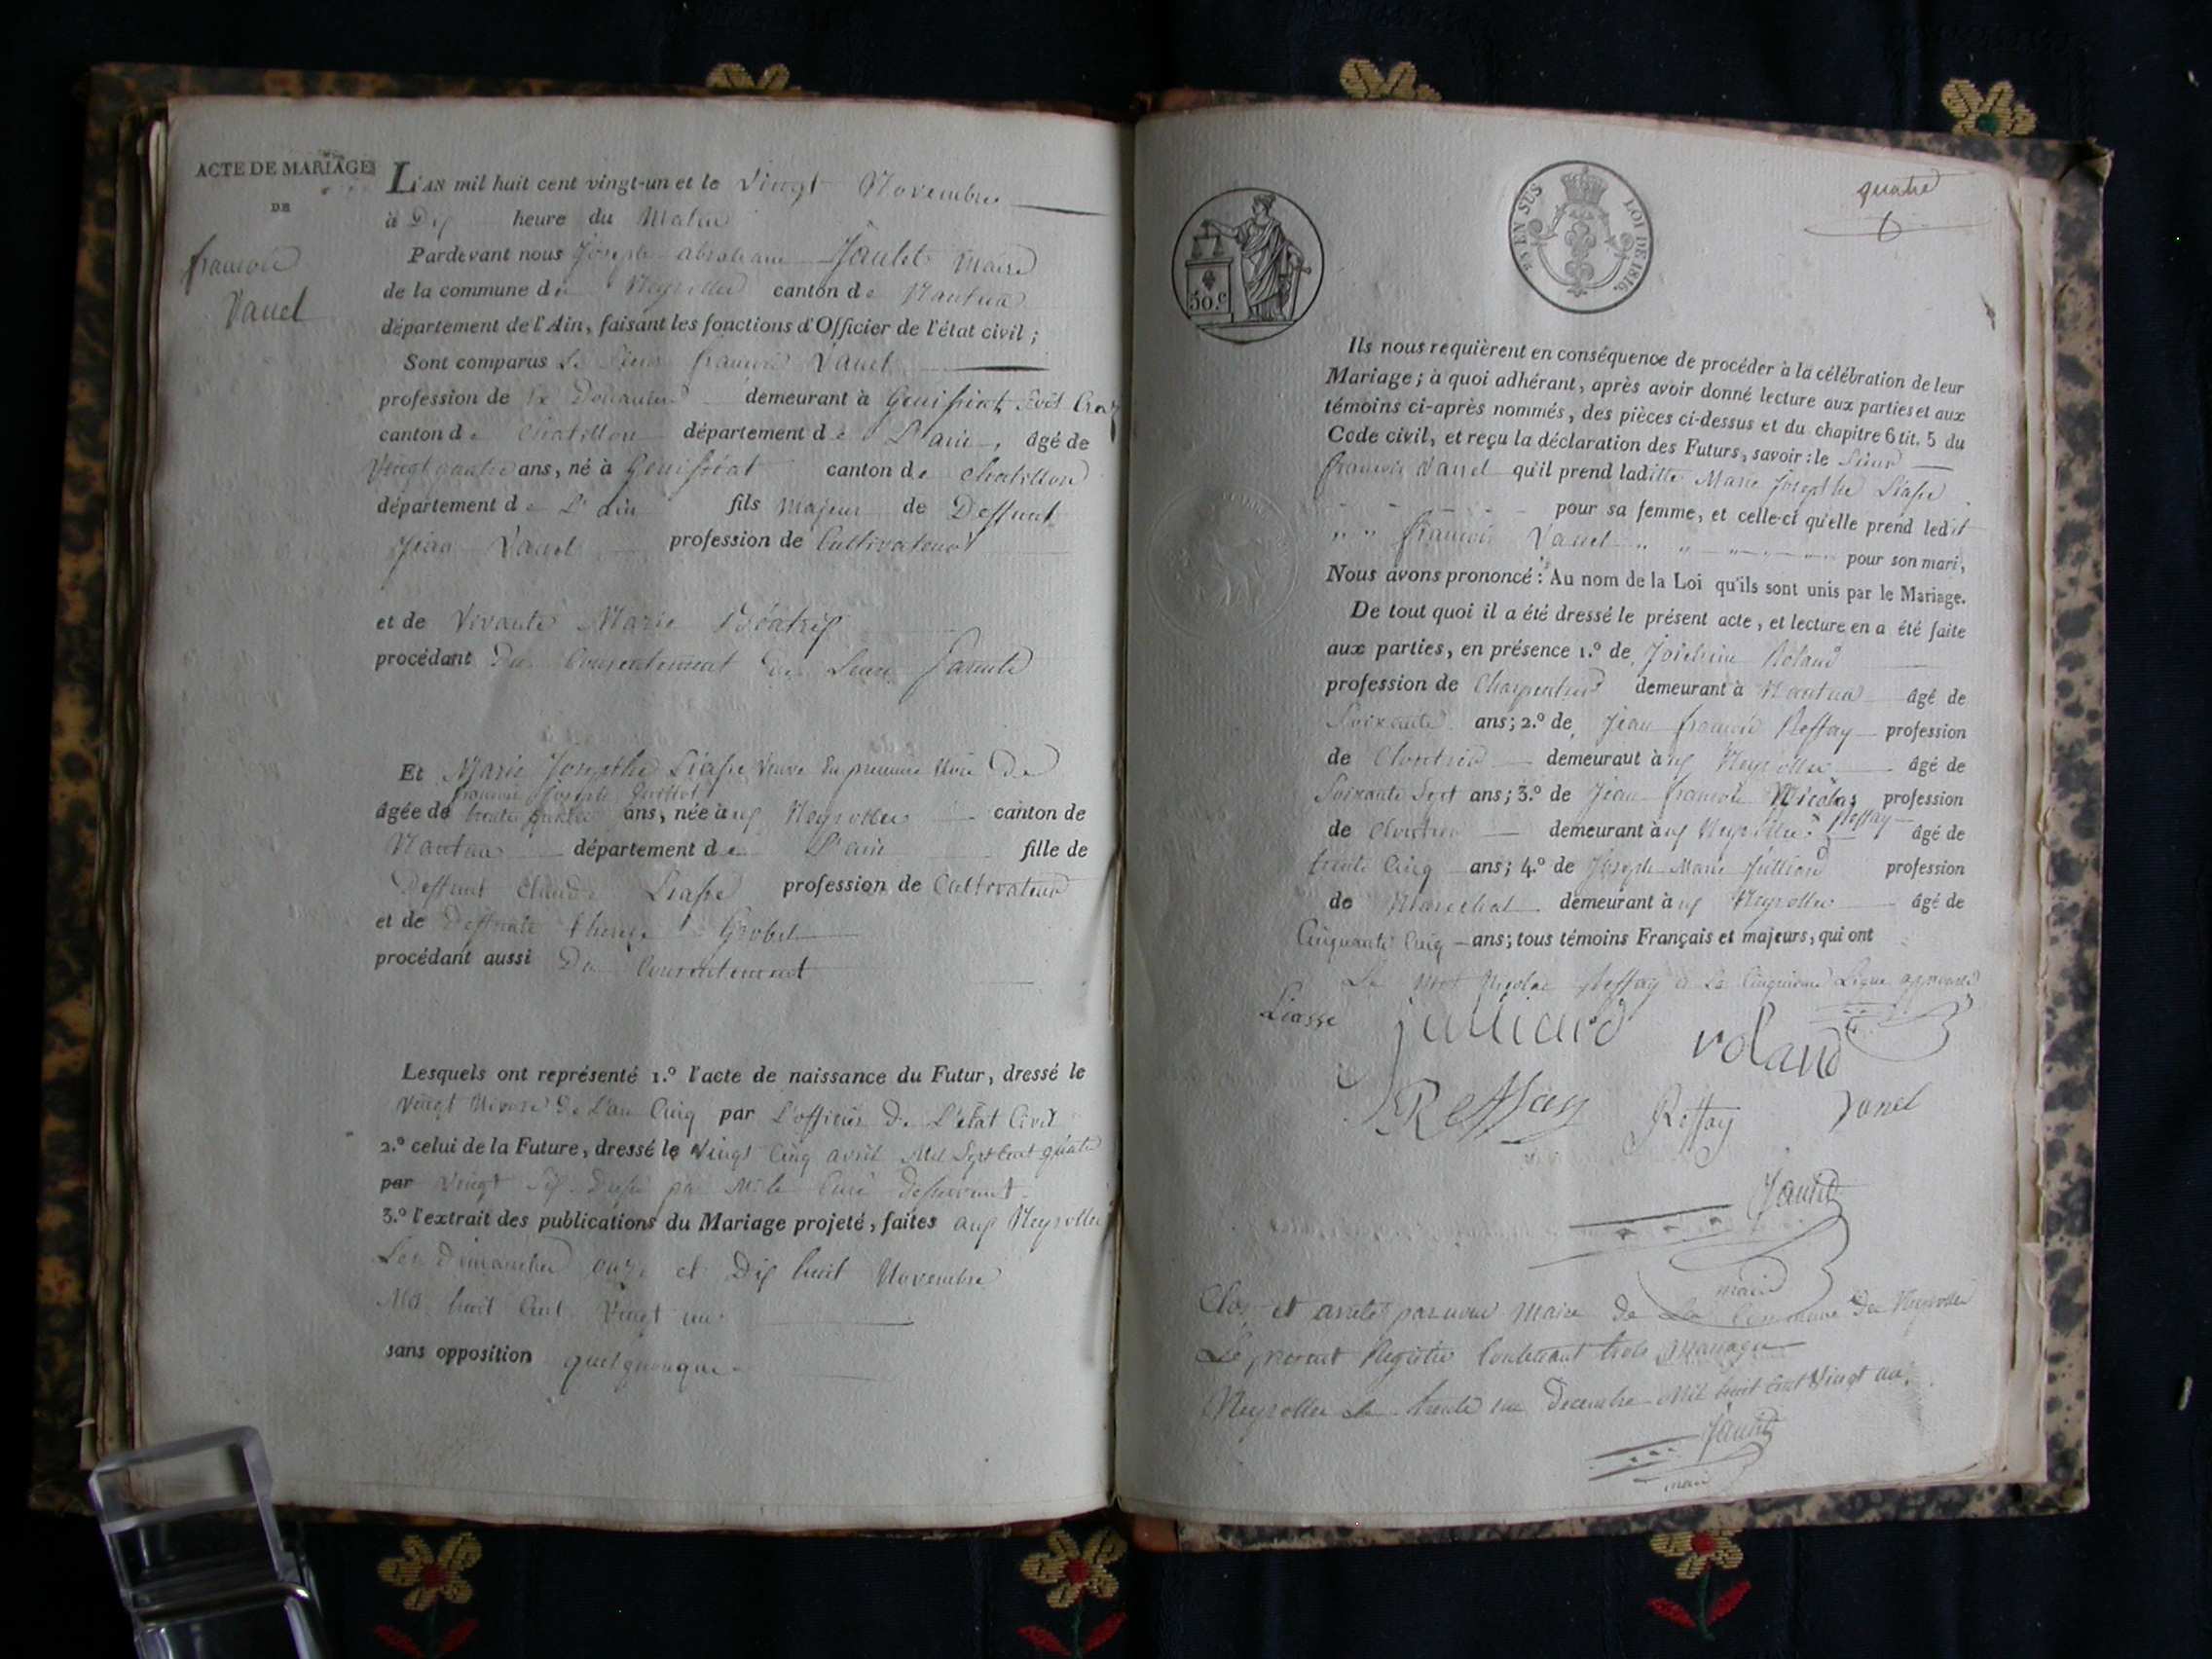 ACTE DE MARIAGE
DE
françois
Vanel
L'AN mil huit cent vingt-un et le Vingt Novembre
à Dix heure du Matin
Pardevant nous Joseph abraham Jantet Maire
de la commune de Neyrolles canton de Nantua
département de l'Ain, faisant les fonctions d'Officier de l'état civil;
Sont comparus Le Sieur françois Vanel
profession de demeurant à Genissiat
canton de Chatillon département de L'ain, âgé de
Vingt quatre ans, né à Genissiat canton de Chatillon
département de L'ain fils Majeur de Deffunt
Jean Vanel profession de Cultivateur
et de Vivante Marie Béatrix
procédant Du Consentement de Leurs Parents
Et Marie Josephe Liasse Veuve En premiere Noce De
françois Joseph
âgée de trente quatre ans, née aux Neyrolles canton de
Nantua département de L'ain fille de
Deffunt Claude Liasse profession de Cultivateur
et de Deffunte therese Grobel
procédant aussi Du Consentement
Lesquels ont représenté 1.º l'acte de naissance du Futur, dressé le
Vingt Nivose De L'an Cinq par L'officier De L'état Civil
2.º celui de la Future, dressé le Vingt Cinq avril Mil Sept Cent quatre
par Vingt Six Dressé par Mr le Curé desservant
3.º l'extrait des publications du Mariage projeté, faites aux Neyrolles
Les Dimanches onze et Dix huit Novembre
Mil huit Cent Vingt un
sans opposition quelquonque
quatre
6
50.C
EN SUS
LOI DE 1816.
Ils nous requièrent en conséquence de procéder à la célébration de leur
Mariage; à quoi adhérant, après avoir donné lecture aux parties et aux
témoins ci-après nommés, des pièces ci-dessus et du chapitre 6 tit. 5 du
Code civil, et reçu la déclaration des Futurs, savoir: le Sieur
françois Vanel qu'il prend laditte Marie Josephe Liasse
pour sa femme, et celle-ci qu'elle prend ledit
françois Vanel pour son mari,
Nous avons prononcé: Au nom de la Loi qu'ils sont unis par le Mariage.
De tout quoi il a été dressé le présent acte, et lecture en a été faite
aux parties, en présence 1.º de Joachim Roland
profession de Charpentier demeurant à Nantua âgé de
Soixante ans; 2.º de Jean françois Reffay profession
de Cloutier demeurant aux Neyrolles âgé de
Soixante Sept ans; 3.º de Jean françois Nicolas profession
Reffay
de Cloutier demeurant aux Neyrolles âgé de
trente Cinq ans; 4.º de Joseph Marie Julliard profession
de Marechal demeurant aux Neyrolles âgé de
Cinquante Cinq ans; tous témoins Français et majeurs, qui ont
Le Mot Nicolas Reffay à La Cinquieme Ligne approuvé
Liasse julliard roland
Reffay Reffay Vanel
Jantet
maire
Clos et arreté par nous Maire de La Commune des Neyrolles
Le present Registre Contenant trois mariages
Neyrolles Le trente un Decembre Mil huit Cent Vingt un.
Jantet
maire